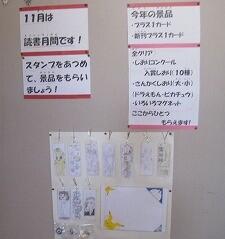 11月は
読書月間です！
スタンプをあつめ
て、景品をもらい
ましょう！
今年の景品
・プラス1カード
・新刊プラス1カード
全クリア
・しおりコンクール
入賞しおり(10種)
・さんかくしおり(大・小)
(ドラえもん・ピカチュウ)
・いろいろマグネット
ここからひとつ
もらえます！